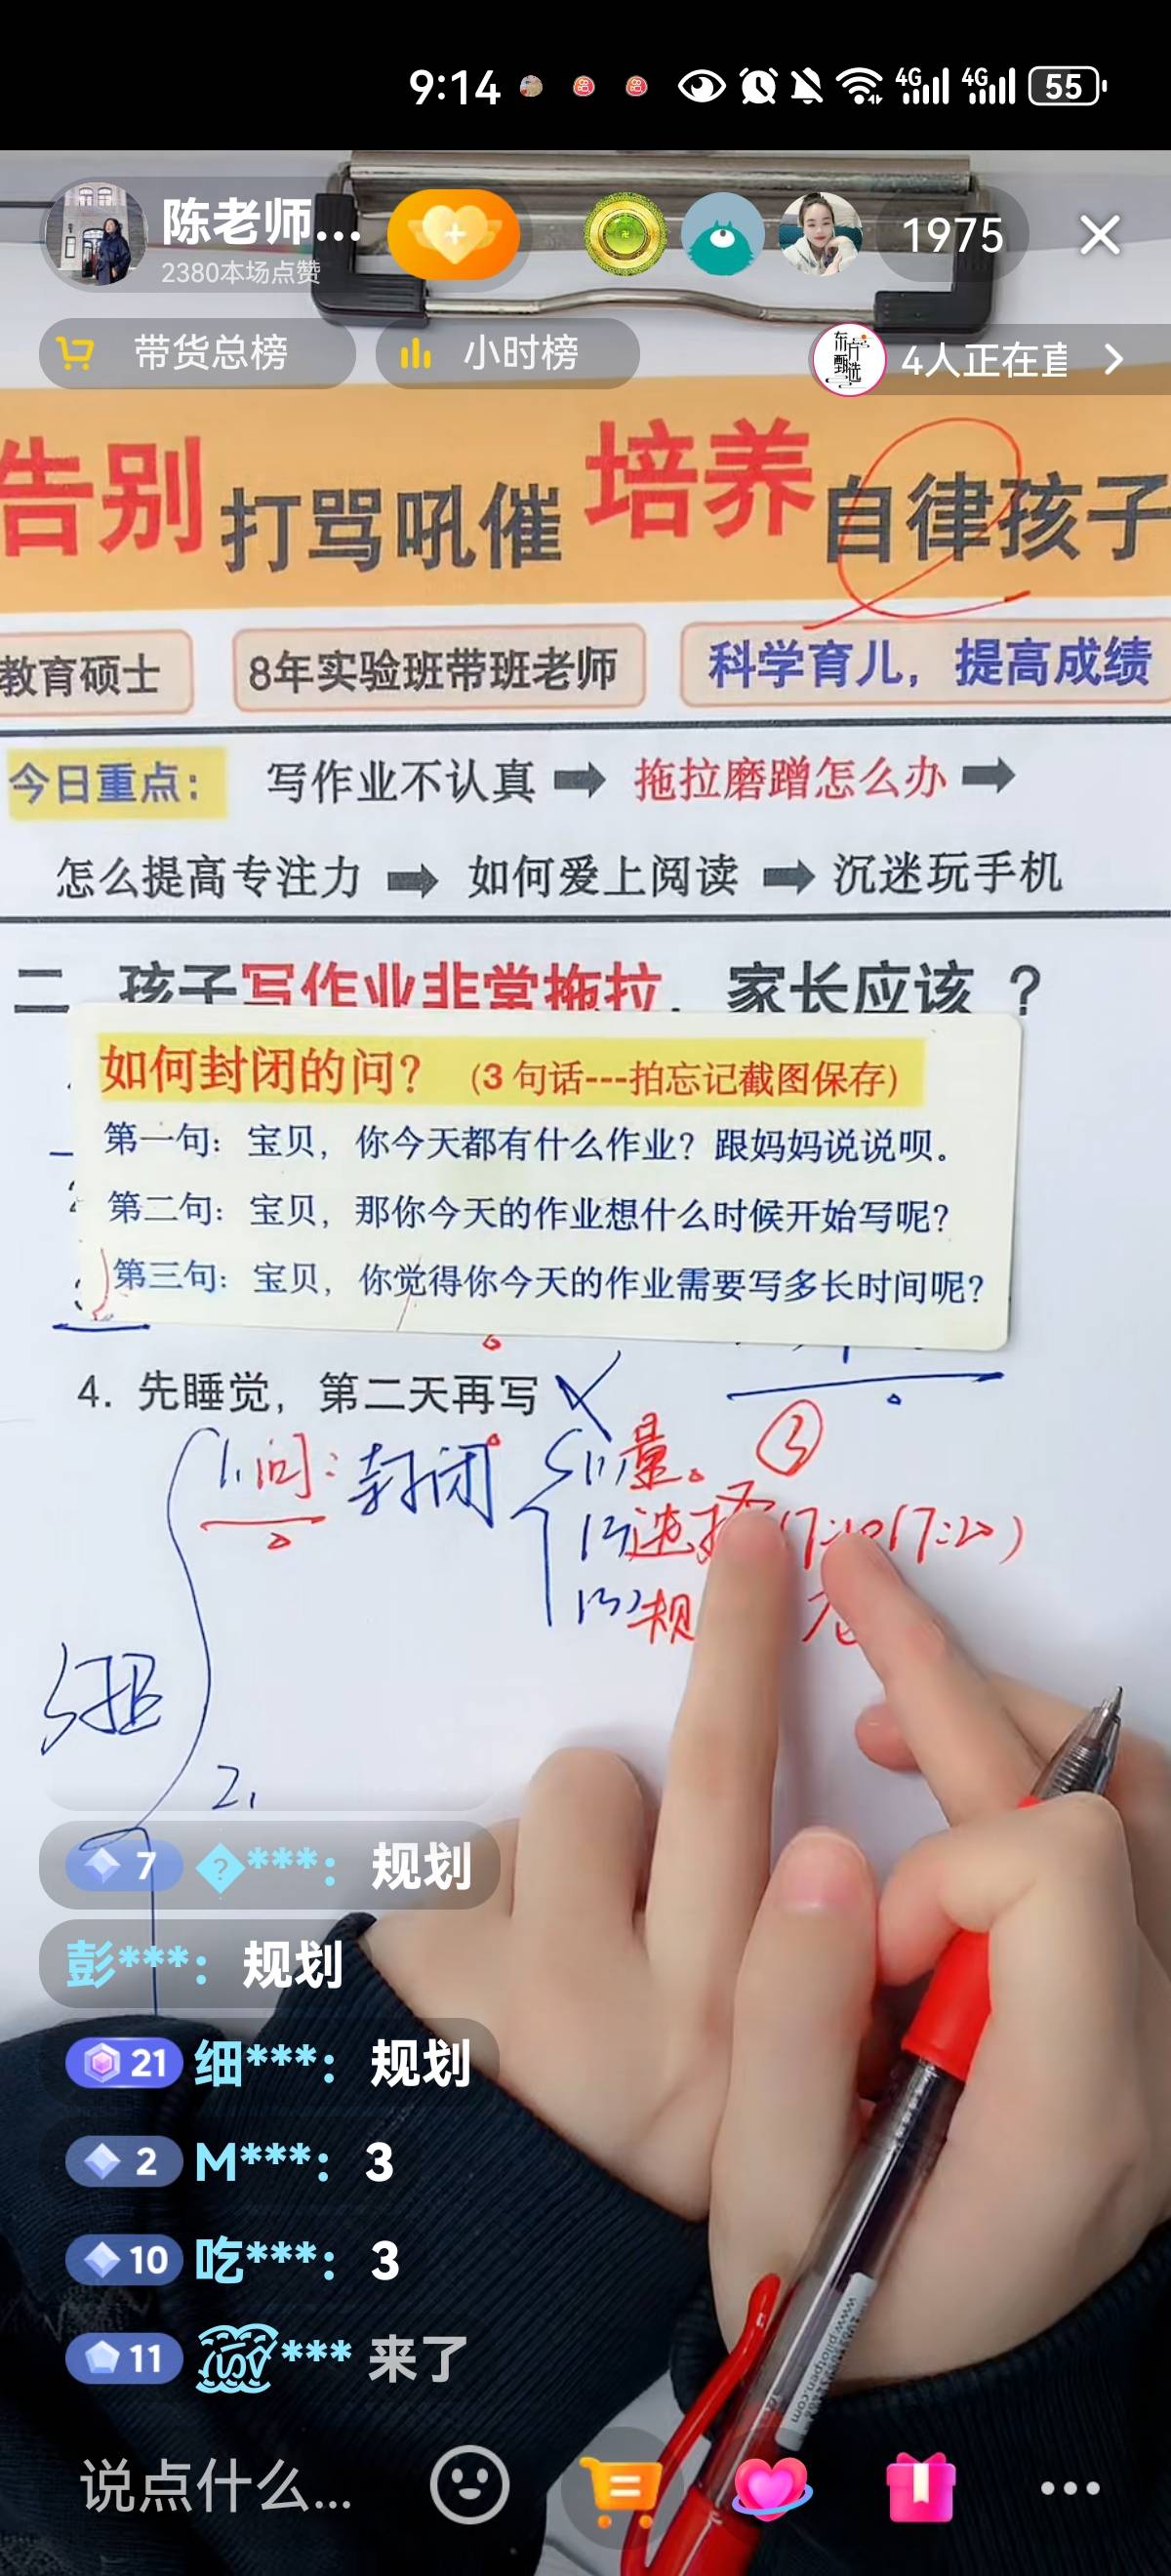 9:14 4G 4G 55
陈老师... 1975
2380本场点赞
带货总榜 小时榜 4人正在直
告别打骂吼催 培养自律孩子
教育硕士 8年实验班带班老师 科学育儿，提高成绩
今日重点： 写作业不认真 拖拉磨蹭怎么办
怎么提高专注力 如何爱上阅读 沉迷玩手机
二 孩子写作业非常拖拉，家长应该 ？
如何封闭的问？（3 句话---拍忘记截图保存）
第一句：宝贝，你今天都有什么作业？跟妈妈说说呗。
第二句：宝贝，那你今天的作业想什么时候开始写呢？
第三句：宝贝，你觉得你今天的作业需要写多长时间呢？
4. 先睡觉，第二天再写
1. 问：封闭 (1)量。 ③
(2)选择 (7:10/7:20)
(3)规
2.
7 ***： 规划
彭***： 规划
21 细***： 规划
2 M***： 3
10 吃***： 3
11 *** 来了
www.pilotpen.com
说点什么...